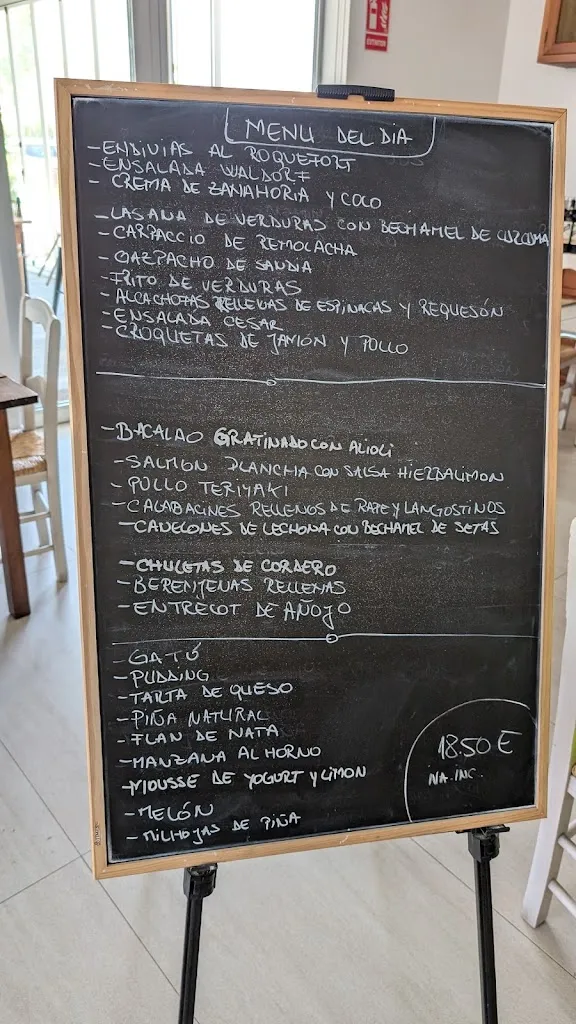 MENU DEL DIA
-ENDIVIAS AL ROQUEFORT
-ENSALADA WALDORF
- CREMA DE ZANAHORIA Y COCO
-LASAÑA DE VERDURAS CON BECHAMEL DE CURCUMA
-CARPACCIO DE REMOLACHA
-GAZPACHO DE SANDIA
-FRITO DE VERDURAS
-ALCACHOFAS RELLENAS DE ESPINACAS Y REQUESÓN
-ENSALADA CESAR
-CROQUETAS DE JAMÓN Y POLLO
-BACALAO GRATINADO CON ALIOLI
-SALMON PLANCHA CON SALSA HIERBALIMON
-POLLO TERIYAKI
-CALABACINES RELLENOS DE RAPE Y LANGOSTINOS
-CANELONES DE LECHONA CON BECHAMEL DE SETAS
-CHULETAS DE CORDERO
-BERENJENAS RELLENAS
-ENTRECOT DE AÑOJO
-GATÓ
-PUDDING
-TARTA DE QUESO
-PIÑA NATURAL
-FLAN DE NATA
-MANZANA AL HORNO
-MOUSSE DE YOGURT Y LIMON
-MELÓN
-MILHOJAS DE PIÑA
18.50 €
IVA. INC.